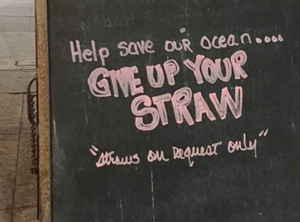 Help save our ocean....
GIVE UP YOUR
STRAW
"straws on request only"